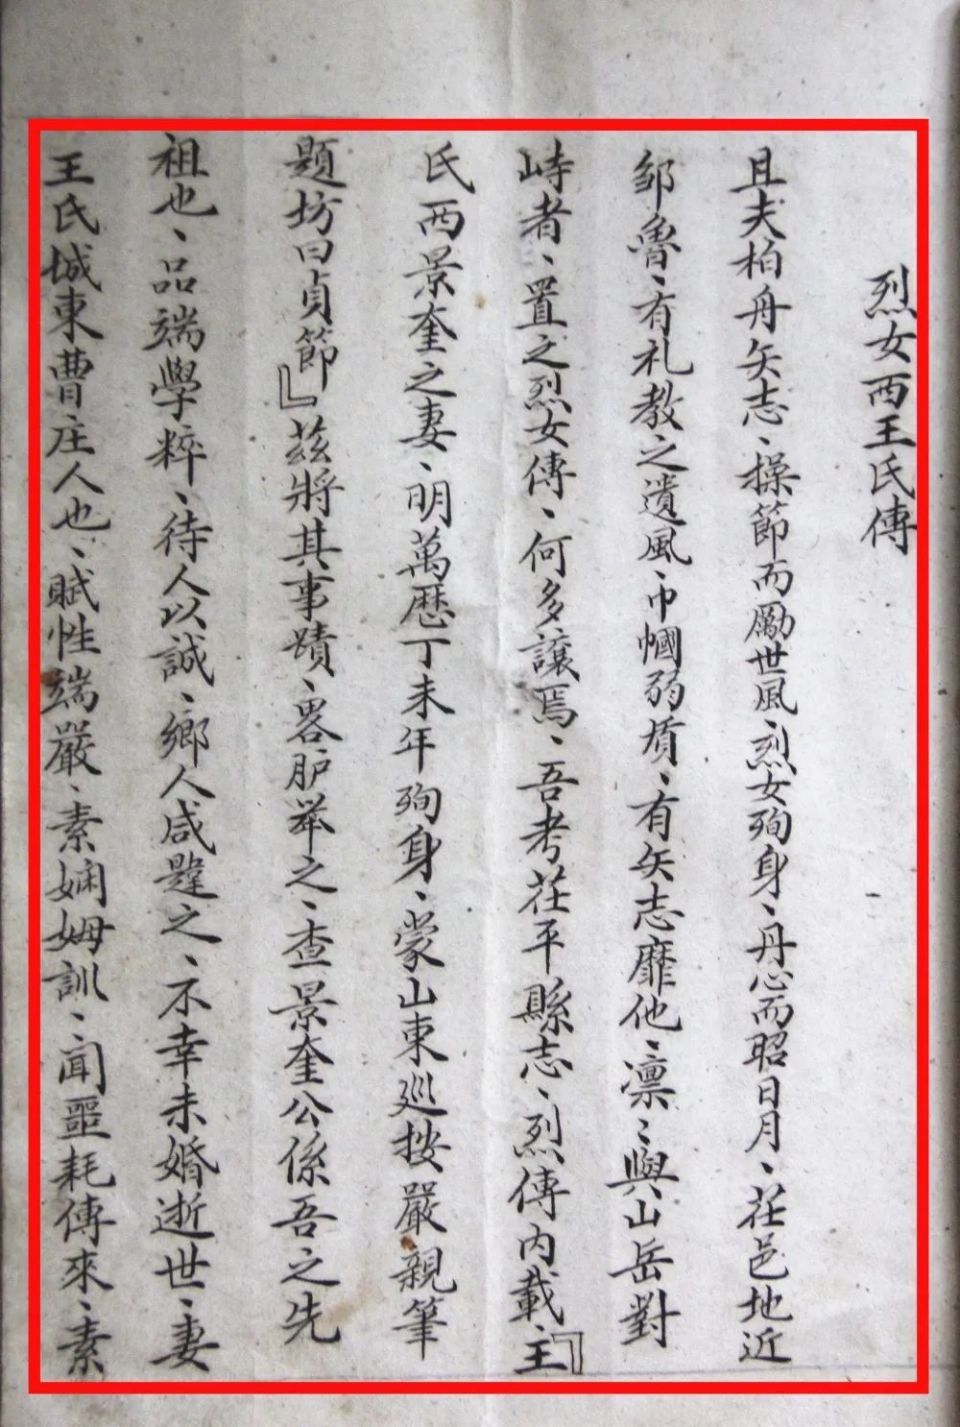 烈女西王氏傳
且夫柏舟矢志、操節而勵世風、烈女殉身、丹心而昭日月、茌邑地近
邹魯、有礼教之遺風、巾幗弱質、有矢志靡他、凛〻與山岳對
峙者、置之烈女傳、何多讓焉、吾考茌平縣志、烈傳内載、『王
氏西景奎之妻、明萬歷丁未年殉身、蒙山東巡按嚴親筆
題坊曰貞節』茲將其事蹟、畧胪举之、查景奎公係吾之先
祖也、品端學粹、待人以誠、鄉人咸韙之、不幸未婚逝世、妻
王氏城東曹庄人也、賦性端嚴、素嫻姆訓、聞噩耗傳來、素